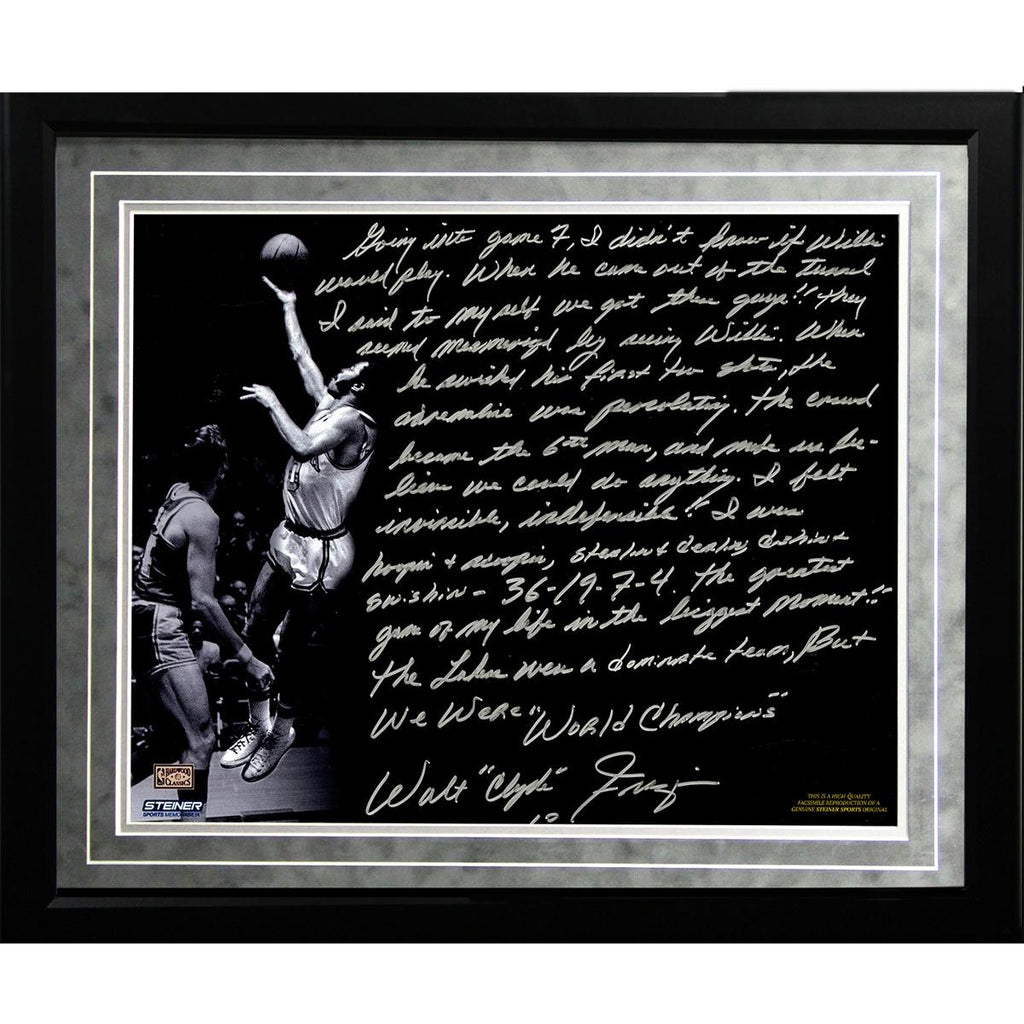 Going into game 7, I didn't know if Willis
would play. When he came out of the tunnel
I said to myself we got these guys!! they
seemed mesmerized by seeing Willis. When
he swished his first two shots, the
adrenaline was percolating. The crowd
became the 6th man, and made us be-
lieve we could do anything. I felt
invincible, indefensible! I was
hoopin + scoopin, stealin + dealin, dishin +
swishin - 36-19-7-4. The greatest
game of my life in the biggest moment!!
The Lakers were a dominate team, But
We Were "World Champions"
Walt "Clyde" Frazier
10
HARDWOOD
CLASSICS
STEINER
SPORTS MEMORABILIA
THIS IS A HIGH QUALITY
FACSIMILE REPRODUCTION OF A
GENUINE STEINER SPORTS ORIGINAL